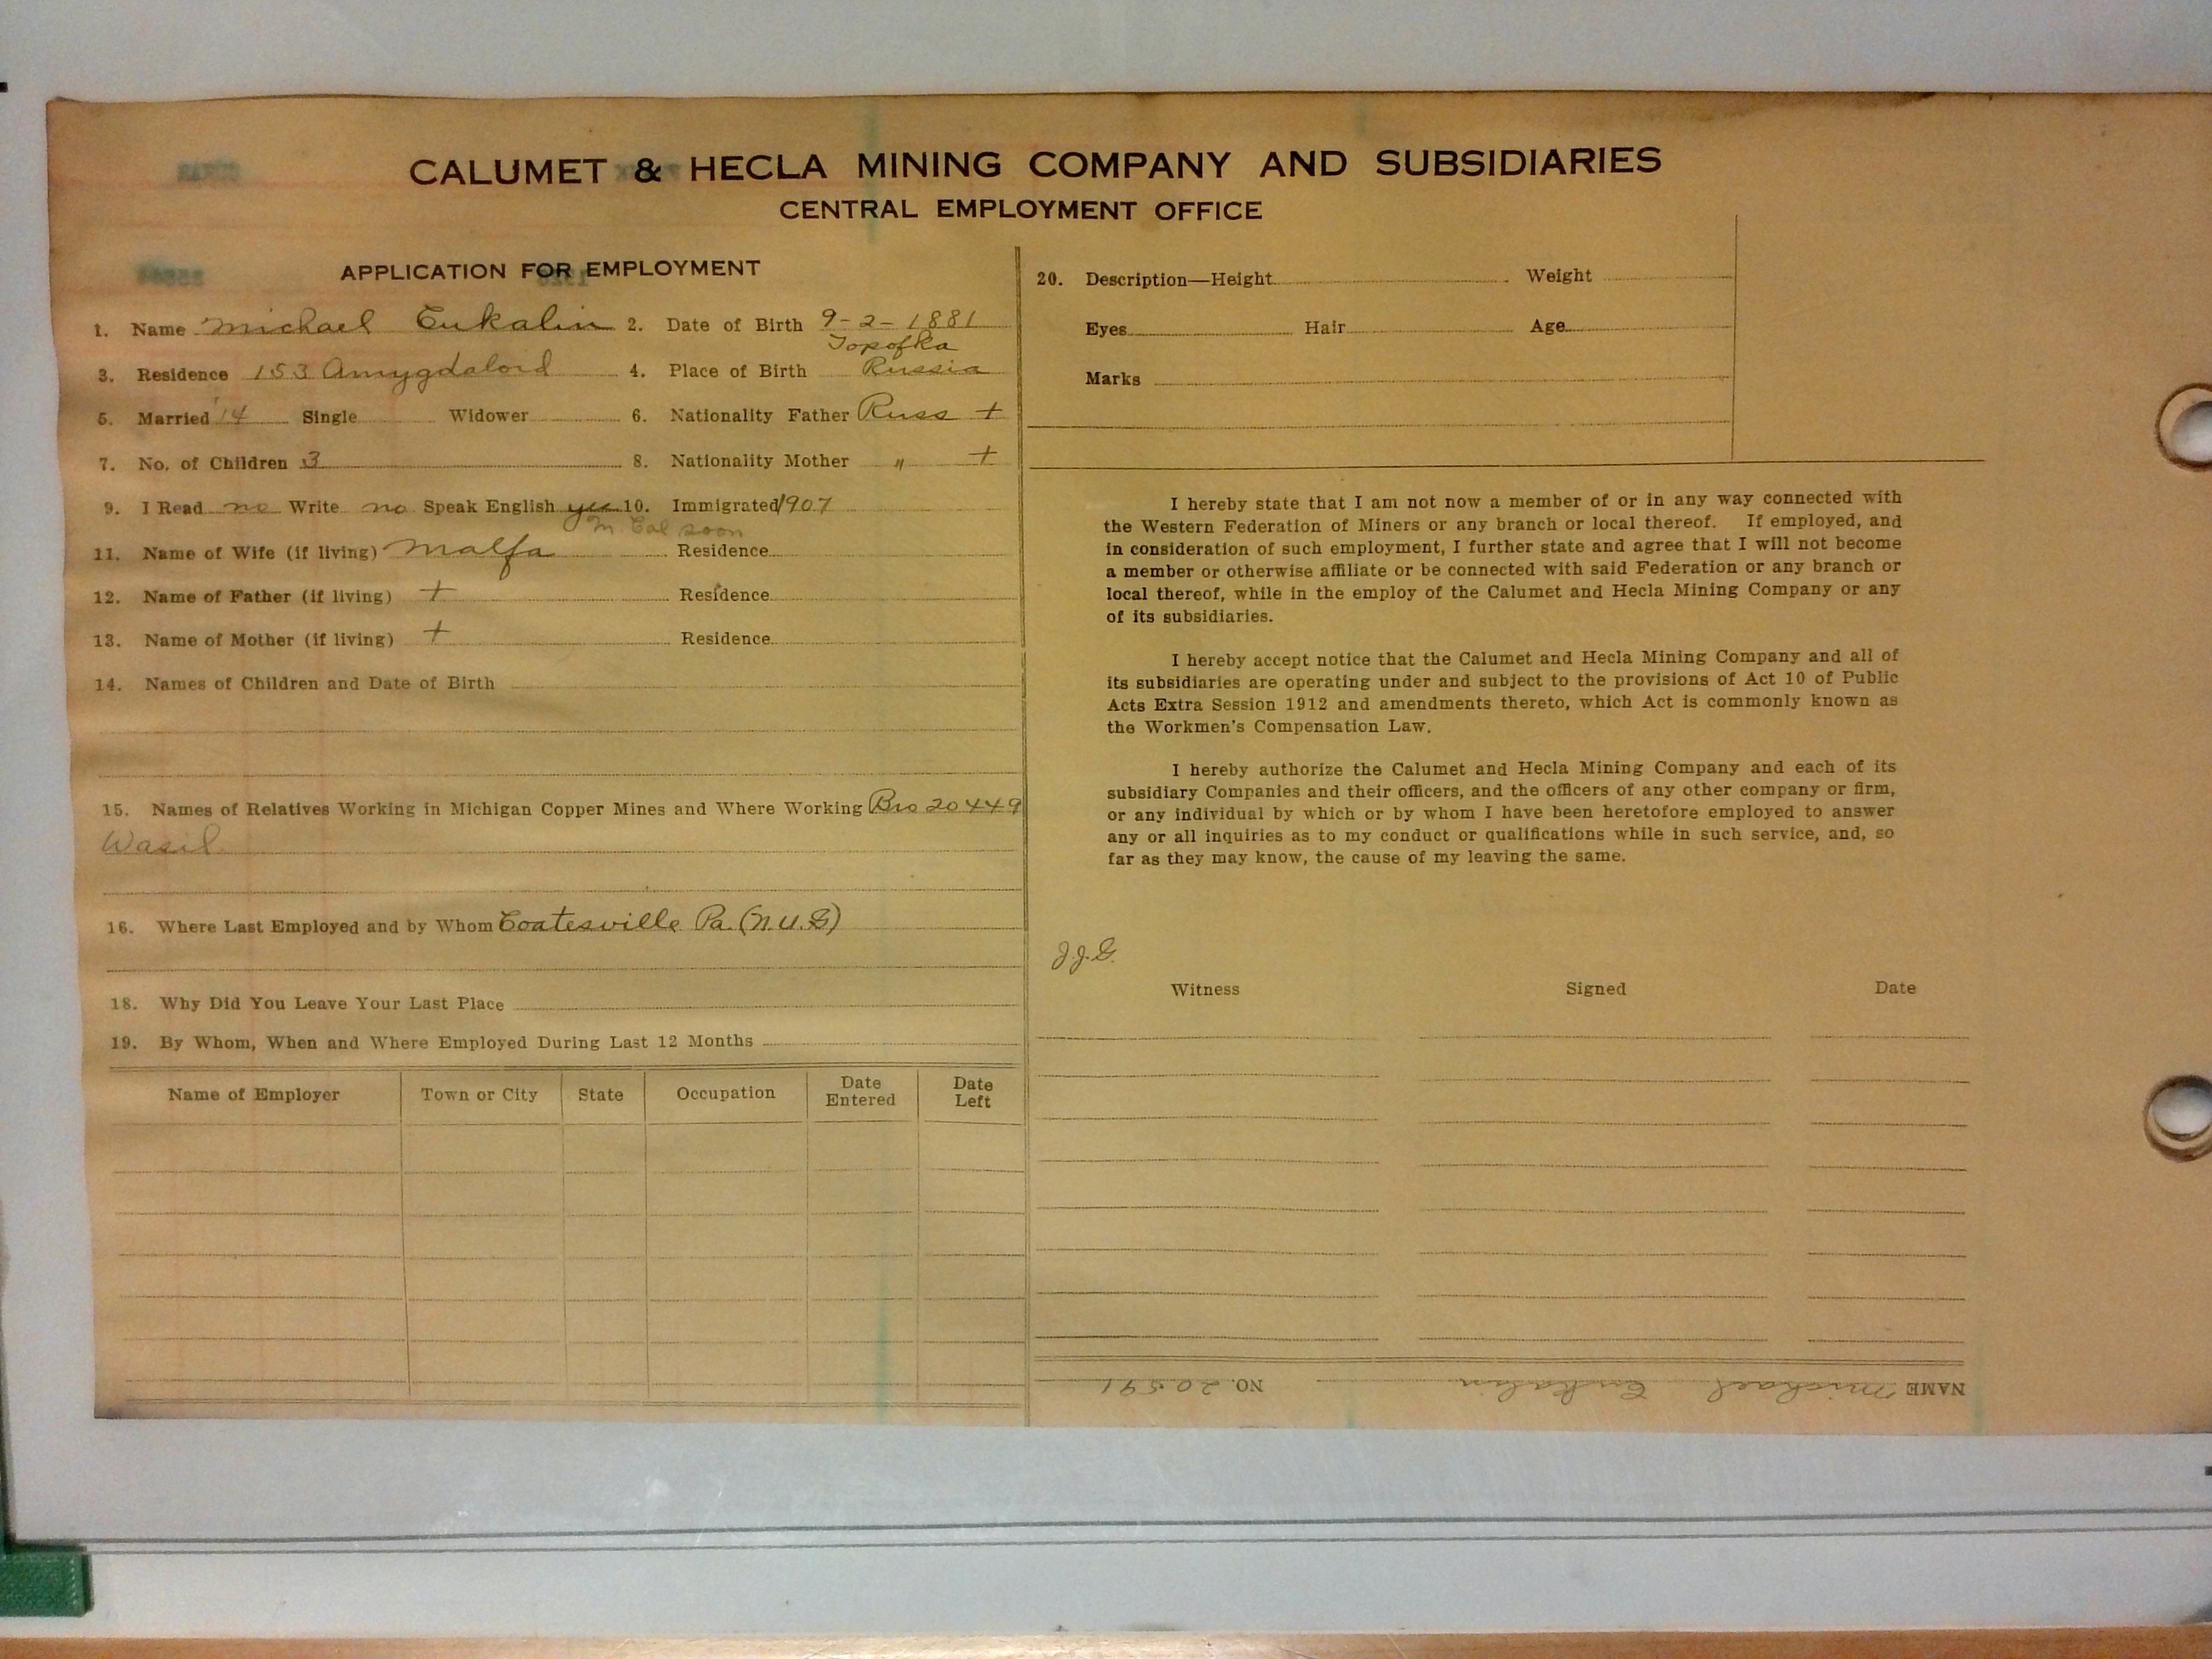 CALUMET & HECLA MINING COMPANY AND SUBSIDIARIES
CENTRAL EMPLOYMENT OFFICE
APPLICATION FOR EMPLOYMENT
1. Name Michael Eukalin 2. Date of Birth 9-2-1881
Topofka
3. Residence 153 Amygdaloid 4. Place of Birth Russia
5. Married '14 Single Widower 6. Nationality Father Russ +
7. No. of Children 3 8. Nationality Mother " +
9. I Read no Write no Speak English yes 10. Immigrated 1907
In Cal soon
11. Name of Wife (if living) Malfa Residence
12. Name of Father (if living) + Residence
13. Name of Mother (if living) + Residence
14. Names of Children and Date of Birth
15. Names of Relatives Working in Michigan Copper Mines and Where Working Bro 20449
Wasil
16. Where Last Employed and by Whom Coatesville Pa. (N.U.G)
18. Why Did You Leave Your Last Place
19. By Whom, When and Where Employed During Last 12 Months
Name of Employer Town or City State Occupation Date Entered Date Left
20. Description—Height Weight
Eyes Hair Age
Marks
I hereby state that I am not now a member of or in any way connected with
the Western Federation of Miners or any branch or local thereof. If employed, and
in consideration of such employment, I further state and agree that I will not become
a member or otherwise affiliate or be connected with said Federation or any branch or
local thereof, while in the employ of the Calumet and Hecla Mining Company or any
of its subsidiaries.
I hereby accept notice that the Calumet and Hecla Mining Company and all of
its subsidiaries are operating under and subject to the provisions of Act 10 of Public
Acts Extra Session 1912 and amendments thereto, which Act is commonly known as
the Workmen's Compensation Law.
I hereby authorize the Calumet and Hecla Mining Company and each of its
subsidiary Companies and their officers, and the officers of any other company or firm,
or any individual by which or by whom I have been heretofore employed to answer
any or all inquiries as to my conduct or qualifications while in such service, and, so
far as they may know, the cause of my leaving the same.
J.J.G.
Witness Signed Date
NAME Michael Eukalin NO. 20591